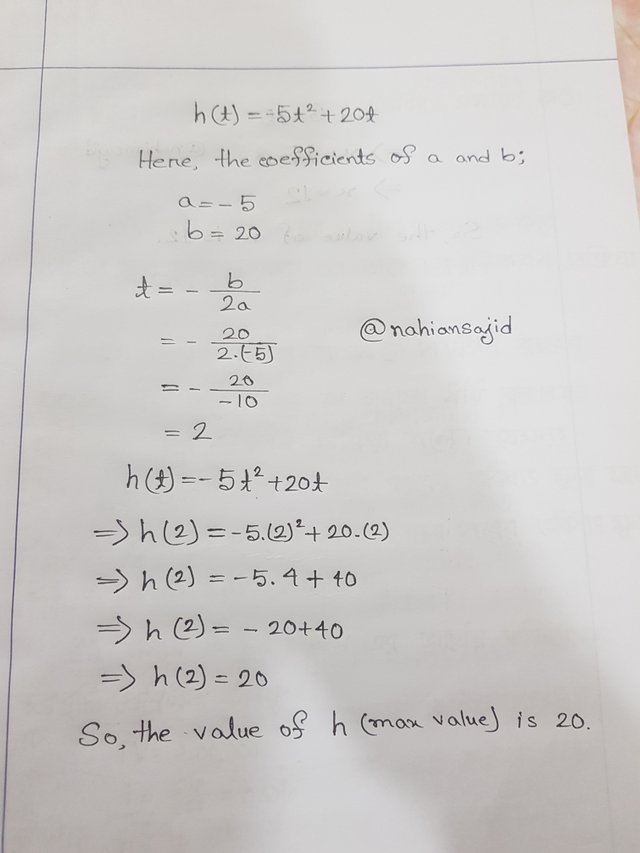 h(t) = -5t² + 20t
Here, the coefficients of a and b;
a = - 5
b = 20
t = - b/2a
= - 20/2.(-5)
@nahiansajid
= - 20/-10
= 2
h(t) = - 5t² + 20t
⇒ h(2) = -5.(2)² + 20.(2)
⇒ h(2) = -5.4 + 40
⇒ h(2) = - 20+40
⇒ h(2) = 20
So, the value of h (max value) is 20.